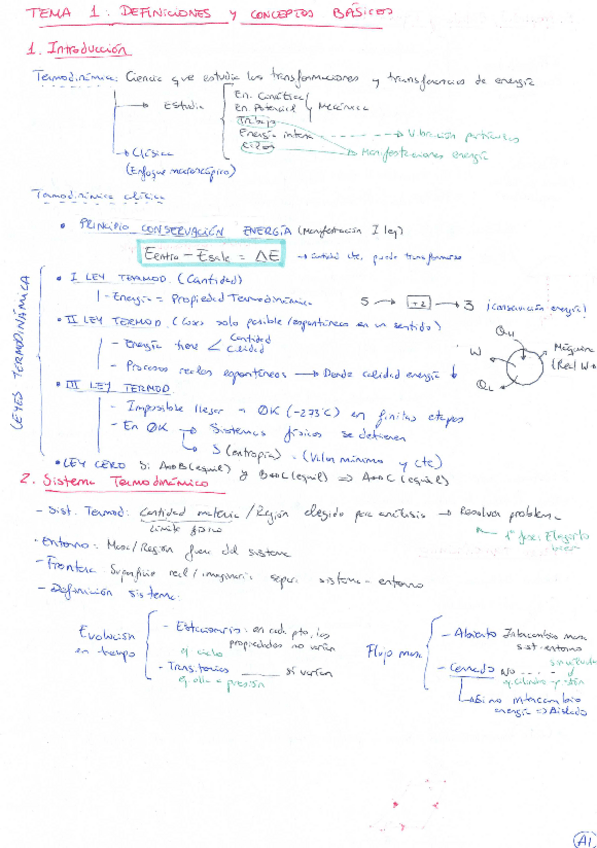 TEMA 1: DEFINICIONES y CONCEPTOS BÁSICOS
1. Introducción
Termodinámica: Ciencia que estudia las transformaciones y transferencias de energía
Estudia
En. Cinética
En. Potencial
Mecánica
Trabajo
Energía interna
Vibración partículas
Calor
Manifestaciones energía
Clásica
(Enfoque macroscópico)
Termodinámica clásica
• PRINCIPIO CONSERVACIÓN ENERGÍA (Manifestación I ley)
Eentra - Esale = ΔE → cantidad cte, puede transformarse
LEYES TERMODINÁMICA
• I LEY TERMOD. (Cantidad)
- Energía = Propiedad Termodinámica
5 → +2 → 3 ¡conservación energía!
• II LEY TERMOD. (Cosas solo posible/espontáneas en un sentido)
- Energía tiene < Cantidad
Calidad
- Procesos reales espontáneos → Donde calidad energía ↓
QH
W
QL
Máquina
(Real W
• III LEY TERMOD
- Imposible llegar a 0K (-273°C) en finitas etapas
- En 0K → Sistemas físicos se detienen
→ S (entropía) = (Valor mínimo y cte)
• LEY CERO Si A↔B (equil) y B↔C (equil) ⇒ A↔C (equil)
2. Sistema Termodinámico
- Sist. Termod: Cantidad materia/Región elegido para análisis → Resolver problema
1ª fase: Elegirlo bien
- Entorno: Masa/Región fuera del sistema
- Frontera: Superficie real/imaginaria separa sistema - entorno
- Definición sistema:
Evolución en tiempo
- Estacionario: en cada pto, las
propiedades no varían
ej ciclo
- Transitorios ____ sí varían
ej olla a presión
Flujo masa
- Abierto Intercambio masa
sist-entorno
- Cerrado No ----
ej. cilindro y
→ Si no intercambio
energía ⇒ Aislado
A1